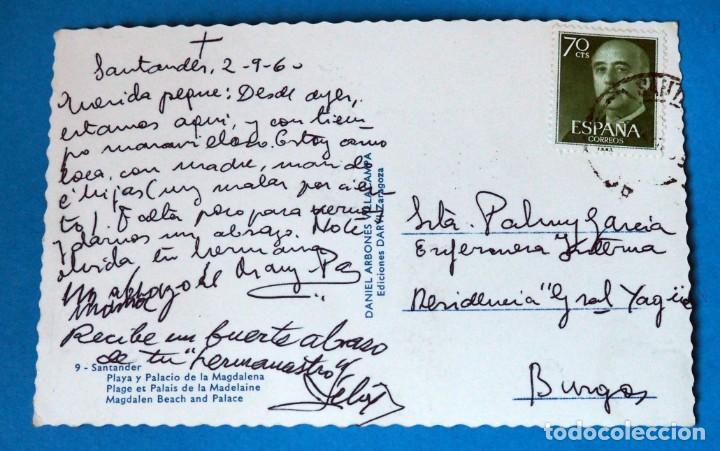 Santander, 2-9-60
Querida peque: Desde ayer,
estamos aquí, y con tiem-
po maravilloso. Estoy como
loca, con madre, marido
é hijas (muy malas por cier-
to). Falta poco para vernos
y darnos un abrazo. No te
olvida tu hermana
Un abrazo de Mary Paz
mamá
Recibe un fuerte abraso
de tu "hermanastro"
Félix
9 - Santander
Playa y Palacio de la Magdalena
Plage et Palais de la Madelaine
Magdalen Beach and Palace
DANIEL ARBONES VILLACAMPA
Ediciones DARVI Zaragoza
70
CTS
ESPAÑA
CORREOS
SANTA
Srta. Palmy García
Enfermera Interna
Residencia "Gral Yagüe
Burgos
todocoleccion
todocoleccion.net